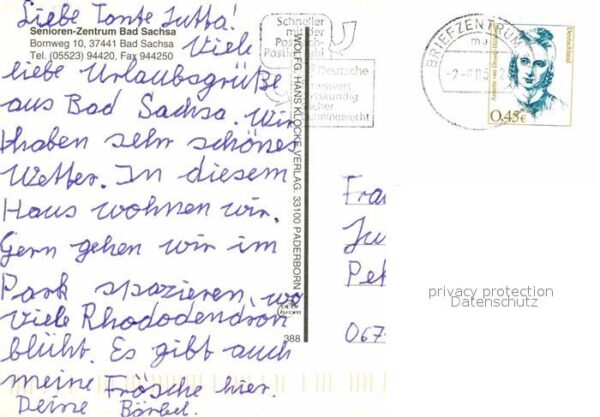 Liebe Tante Jutta!
Senioren-Zentrum Bad Sachsa
Bornweg 10, 37441 Bad Sachsa
Tel. (05523) 94420, Fax 944250
Viele
liebe Urlaubsgrüße
aus Bad Sachsa. Wir
haben sehr schönes
Wetter. In diesem
Haus wohnen wir.
Gern gehen wir im
Park spazieren, wo
viele Rhododendron
blüht. Es gibt auch
meine Frösche hier.
Deine Bärbel.
Schneller
mit der
Deutsche
WOLFG. HANS KLOCKE VERLAG, 33100 PADERBORN
388
BRIEFZENTRUM
Deutschland
0,45€
Ju
Pet
067
privacy protection
Datenschutz